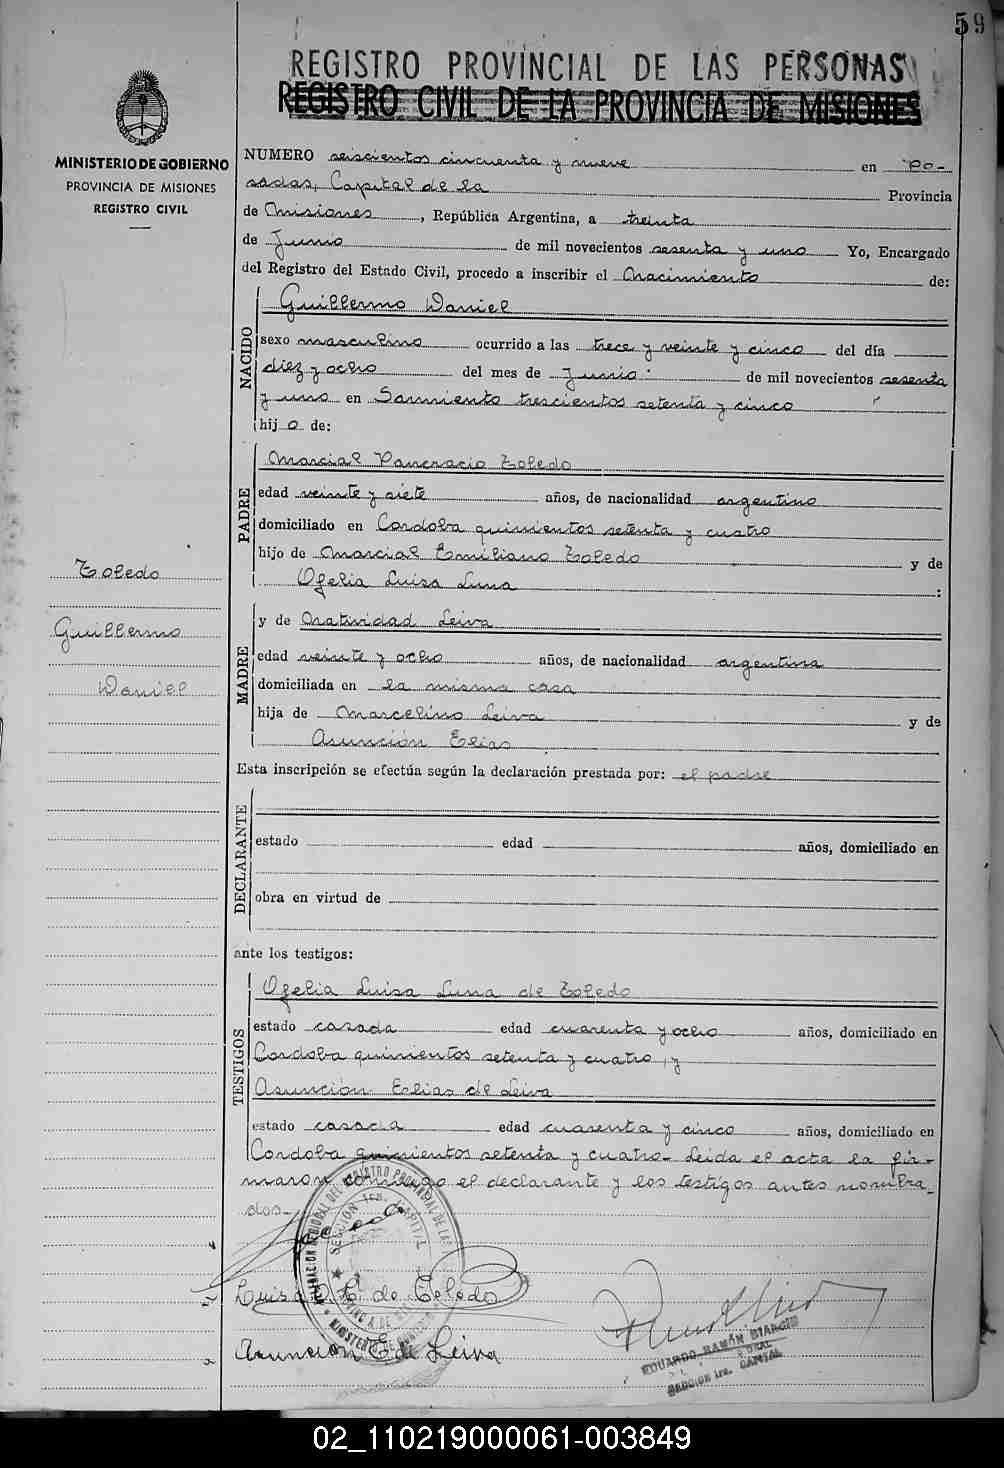 59
REGISTRO PROVINCIAL DE LAS PERSONAS
REGISTRO CIVIL DE LA PROVINCIA DE MISIONES
MINISTERIO DE GOBIERNO
PROVINCIA DE MISIONES
REGISTRO CIVIL
NUMERO seiscientos cincuenta y nueve en Po-
sadas, Capital de la Provincia
de Misiones, República Argentina, a treinta
de Junio de mil novecientos sesenta y uno Yo, Encargado
del Registro del Estado Civil, procedo a inscribir el Nacimiento de:
NACIDO
Guillermo Daniel
sexo masculino ocurrido a las trece y veinte y cinco del día
diez y ocho del mes de Junio. de mil novecientos sesenta
y uno en Sarmiento trescientos setenta y cinco
hij o de:
PADRE
Marcial Pancracio Toledo
edad veinte y siete años, de nacionalidad argentino
domiciliado en Cordoba quinientos setenta y cuatro
hijo de Marcial Emiliano Toledo y de
Ofelia Luisa Luna :
Toledo
Guillermo
Daniel
MADRE
y de Natividad Leiva
edad veinte y ocho años, de nacionalidad argentina
domiciliada en la misma casa
hija de Marcelino Leiva y de
Asunción Elias
Esta inscripción se efectúa según la declaración prestada por: el padre
DECLARANTE
estado edad años, domiciliado en
obra en virtud de
ante los testigos:
TESTIGOS
Ofelia Luisa Luna de Toledo
estado casada edad cuarenta y ocho años, domiciliado en
Cordoba quinientos setenta y cuatro, y
Asunción Elias de Leiva
estado casada edad cuarenta y cinco años, domiciliado en
Cordoba quinientos setenta y cuatro- Leida el acta la fir-
maron conmigo el declarante y los testigos antes nombra-
dos-
SECCION 1ra. CAPITAL
Luisa L. de Toledo
Asunción E de Leiva
EDUARDO RAMÓN BIANCHI
Sección 1ra. CAPITAL
02_110219000061-003849